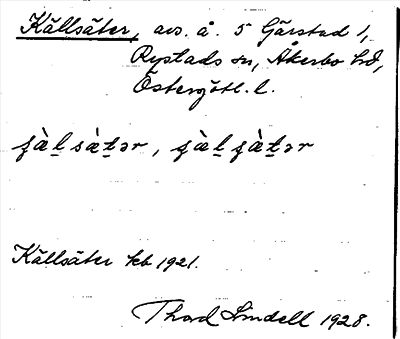 Källsäter, avs. å. 5 Gärstad 1,
Rystads sn, Åkerbo hd,
Östergötl. l.
Källsäter kb 1921.
Thord Lindell 1928.